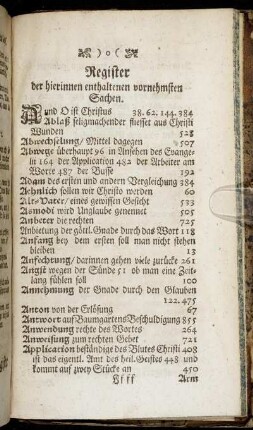 ) o (
Register
der hierinnen enthaltenen vornehmsten
Sachen.
A und O ist Christus 38. 62. 144. 384
Ablaß seligmachender fliesset aus Christi
Wunden 528
Abwechselung / Mittel dagegen 507
Abwege überhaupt 96 in Ansehen des Evange-
lii 164 der Application 482 der Arbeiter am
Worte 487 der Busse 192
Adam des ersten und andern Vergleichung 384
Aehnlich sollen wir Christo worden 60
Alt-Vater / eines gewissen Gesicht 533
Asmodi wird Unglaube genennet 505
Anbeter die rechten 725
Anbietung der göttl. Gnade durch das Wort 118
Anfang bey dem ersten soll man nicht stehen
bleiben 13
Anfechtung / darinnen gehen viele zurücke 261
Angst wegen der Sünde 51 ob man eine Zeit-
lang fühlen soll 100
Annehmung der Gnade durch den Glauben
122. 475
Anton von der Erlösung 67
Antwort auf Baumgartens Beschuldigung 855
Anwendung rechte des Wortes 264
Anweisung zum rechten Gebet 721
Application beständige des Blutes Christi 408
ist das eigentl. Amt des heil. Geistes 448 und
kommt auf zwey Stücke an 450
Arm